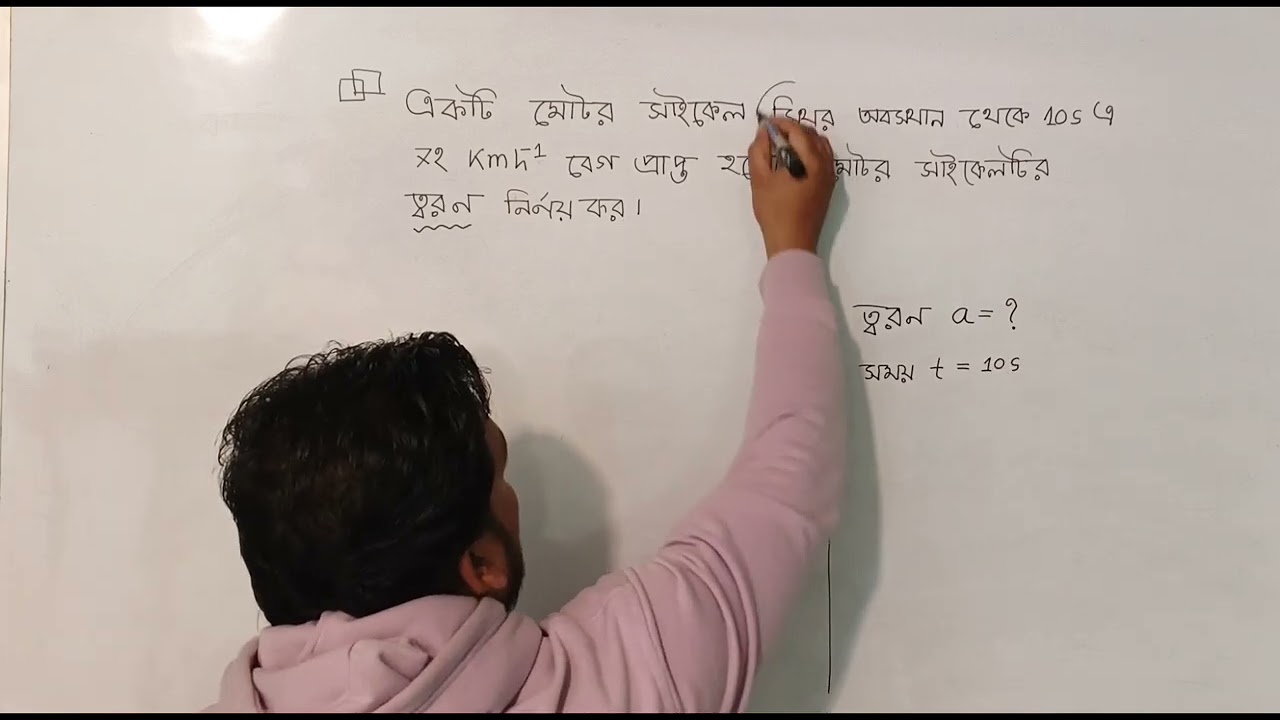 একটি মোটর সাইকেল স্থির অবস্থান থেকে 10s এ
72 Kmh⁻¹ বেগ প্রাপ্ত মোটর সাইকেলটির
ত্বরন নির্নয় কর।
ত্বরন a = ?
সময় t = 10s